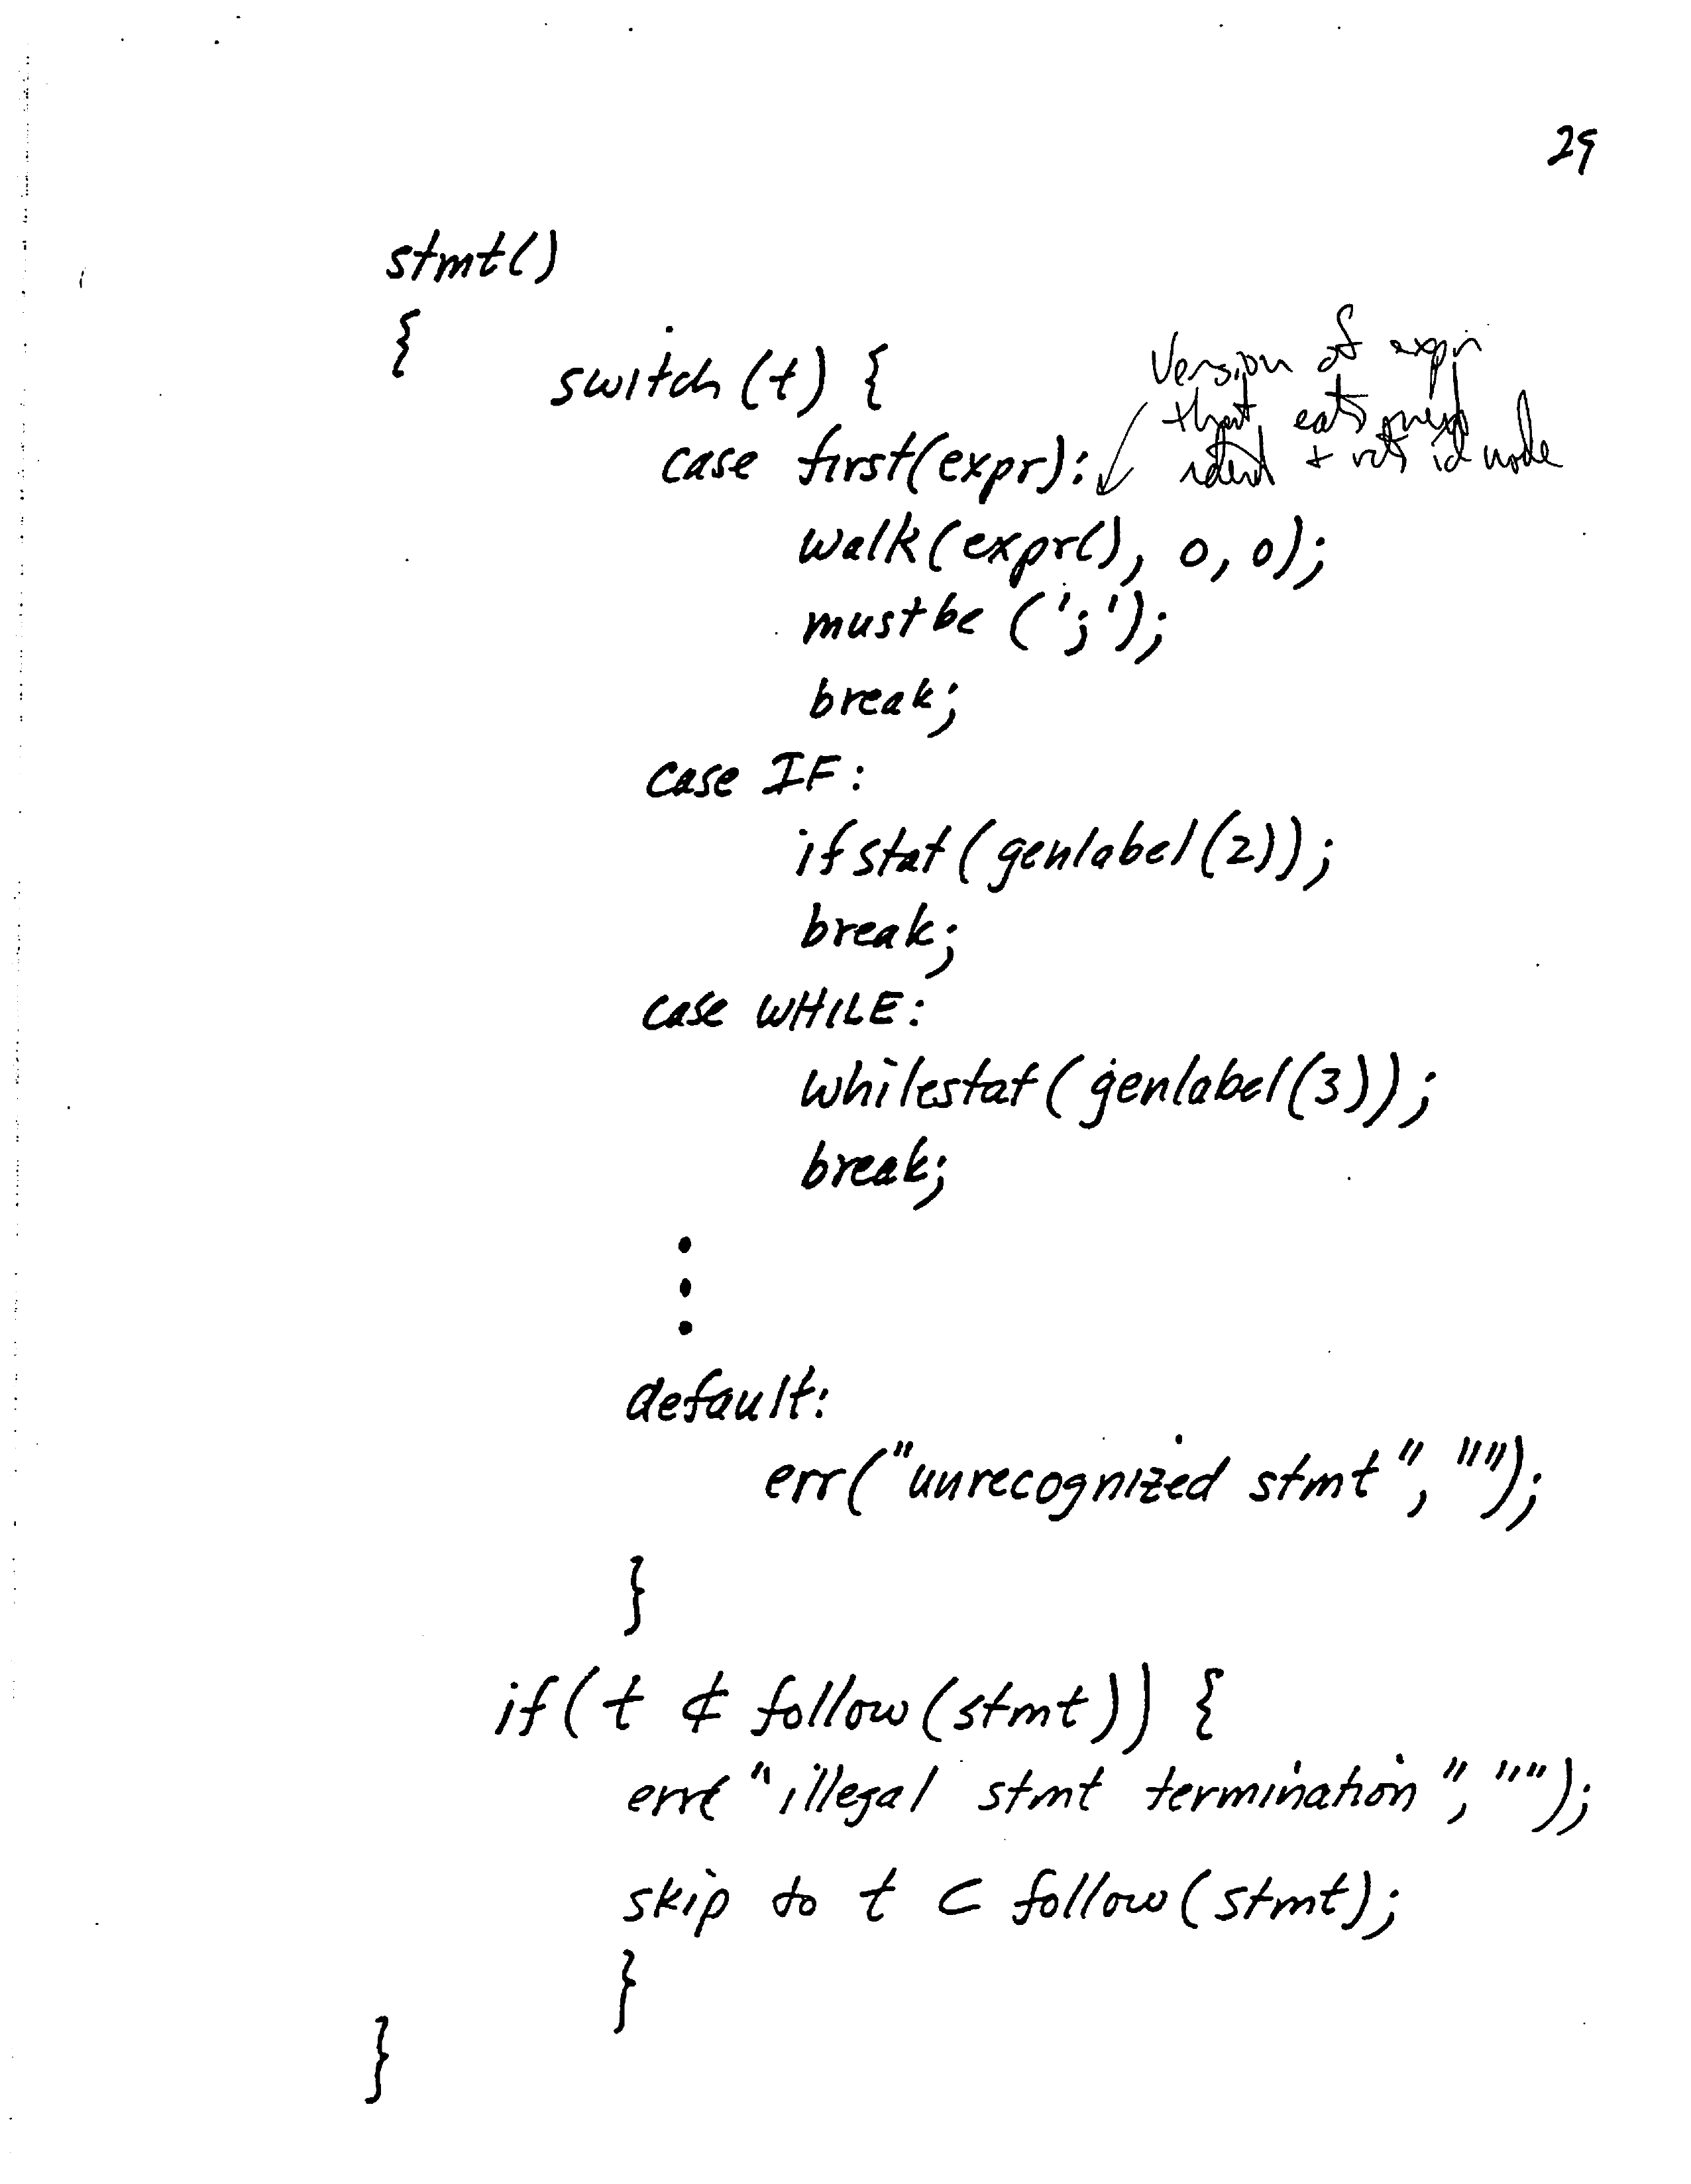 29
stmt()
{
switch (t) {
Version of expr
that eats
ident + rets id node
case first(expr):
walk(expr(), 0, 0);
mustbe (';');
break;
case IF:
ifstat(genlabel(2));
break;
case WHILE:
whilestat(genlabel(3));
break;
⋮
default:
err("unrecognized stmt", "");
}
if(t ⊄ follow(stmt)) {
err("illegal stmt termination", "");
skip to t ⊂ follow(stmt);
}
}